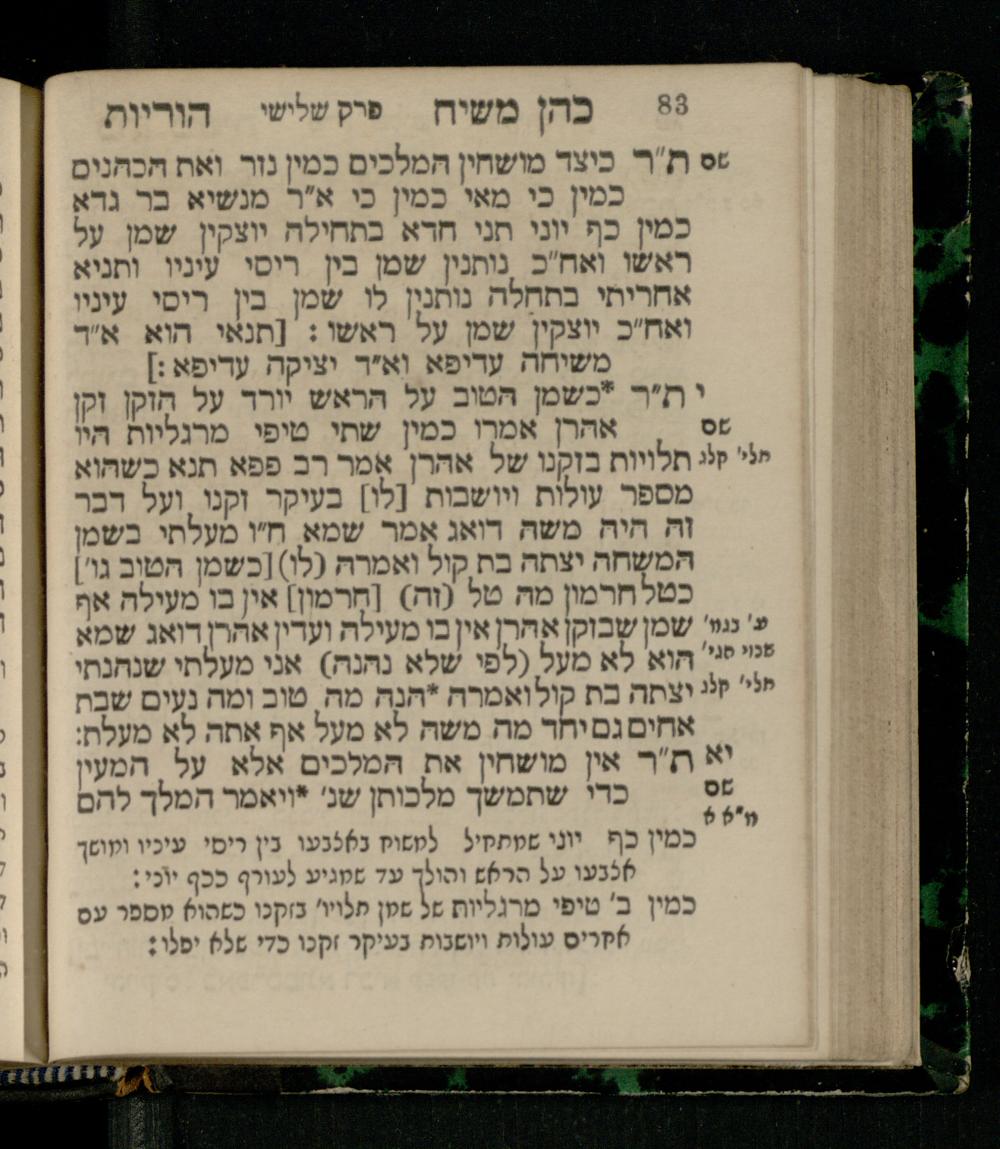 83 כהן משיח פרק שלישי הוריות
שם ת״ר כיצד מושחין המלכים כמין נזר ואת הכהנים
כמין כי מאי כמין כי א״ר מנשיא בר גדא
כמין כף יוני תני חדא בתחילה יוצקין שמן על
ראשו ואח״כ נותנין שמן בין ריסי עיניו ותניא
אחריתי בתחלה נותנין לו שמן בין ריסי עיניו
ואח״כ יוצקין שמן על ראשו : [תנאי הוא א״ד
משיחה עדיפא וא״ד יציקה עדיפא :]
י ת״ר *כשמן הטוב על הראש יורד על הזקן זקן
שם אהרן אמרו כמין שתי טיפי מרגליות היו
תלי׳ קלג תלויות בזקנו של אהרן אמר רב פפא תנא כשהוא
מספר עולות ויושבות [לו] בעיקר זקנו ועל דבר
זה היה משה דואג אמר שמא ח״ו מעלתי בשמן
המשחה יצתה בת קול ואמרה (לו) [כשמן הטוב גו׳]
כטל חרמון מה טל (זה) [חרמון] אין בו מעילה אף
ע׳ בגמ׳ שמן שבזקן אהרן אין בו מעילה ועדין אהרן דואג שמא
שנוי סגי׳ הוא לא מעל (לפי שלא נהנה) אני מעלתי שנהנתי
תלי׳ קלג יצתה בת קול ואמרה *הנה מה טוב ומה נעים שבת
אחים גם יחד מה משה לא מעל אף אתה לא מעלת:
יא ת״ר אין מושחין את המלכים אלא על המעין
שם כדי שתמשך מלכותן שנ׳ *ויאמר המלך להם
מ״א א
כמין כף יוני שמתחיל למשוח באצבעו בין ריסי עיניו ומושך
אצבעו על הראש והולך עד שמגיע לעורף ככף יוני :
כמין ב׳ טיפי מרגליות של שמן תלויו׳ בזקנו כשהוא מספר עם
אחרים עולות ויושבות בעיקר זקנו כדי שלא יפלו :